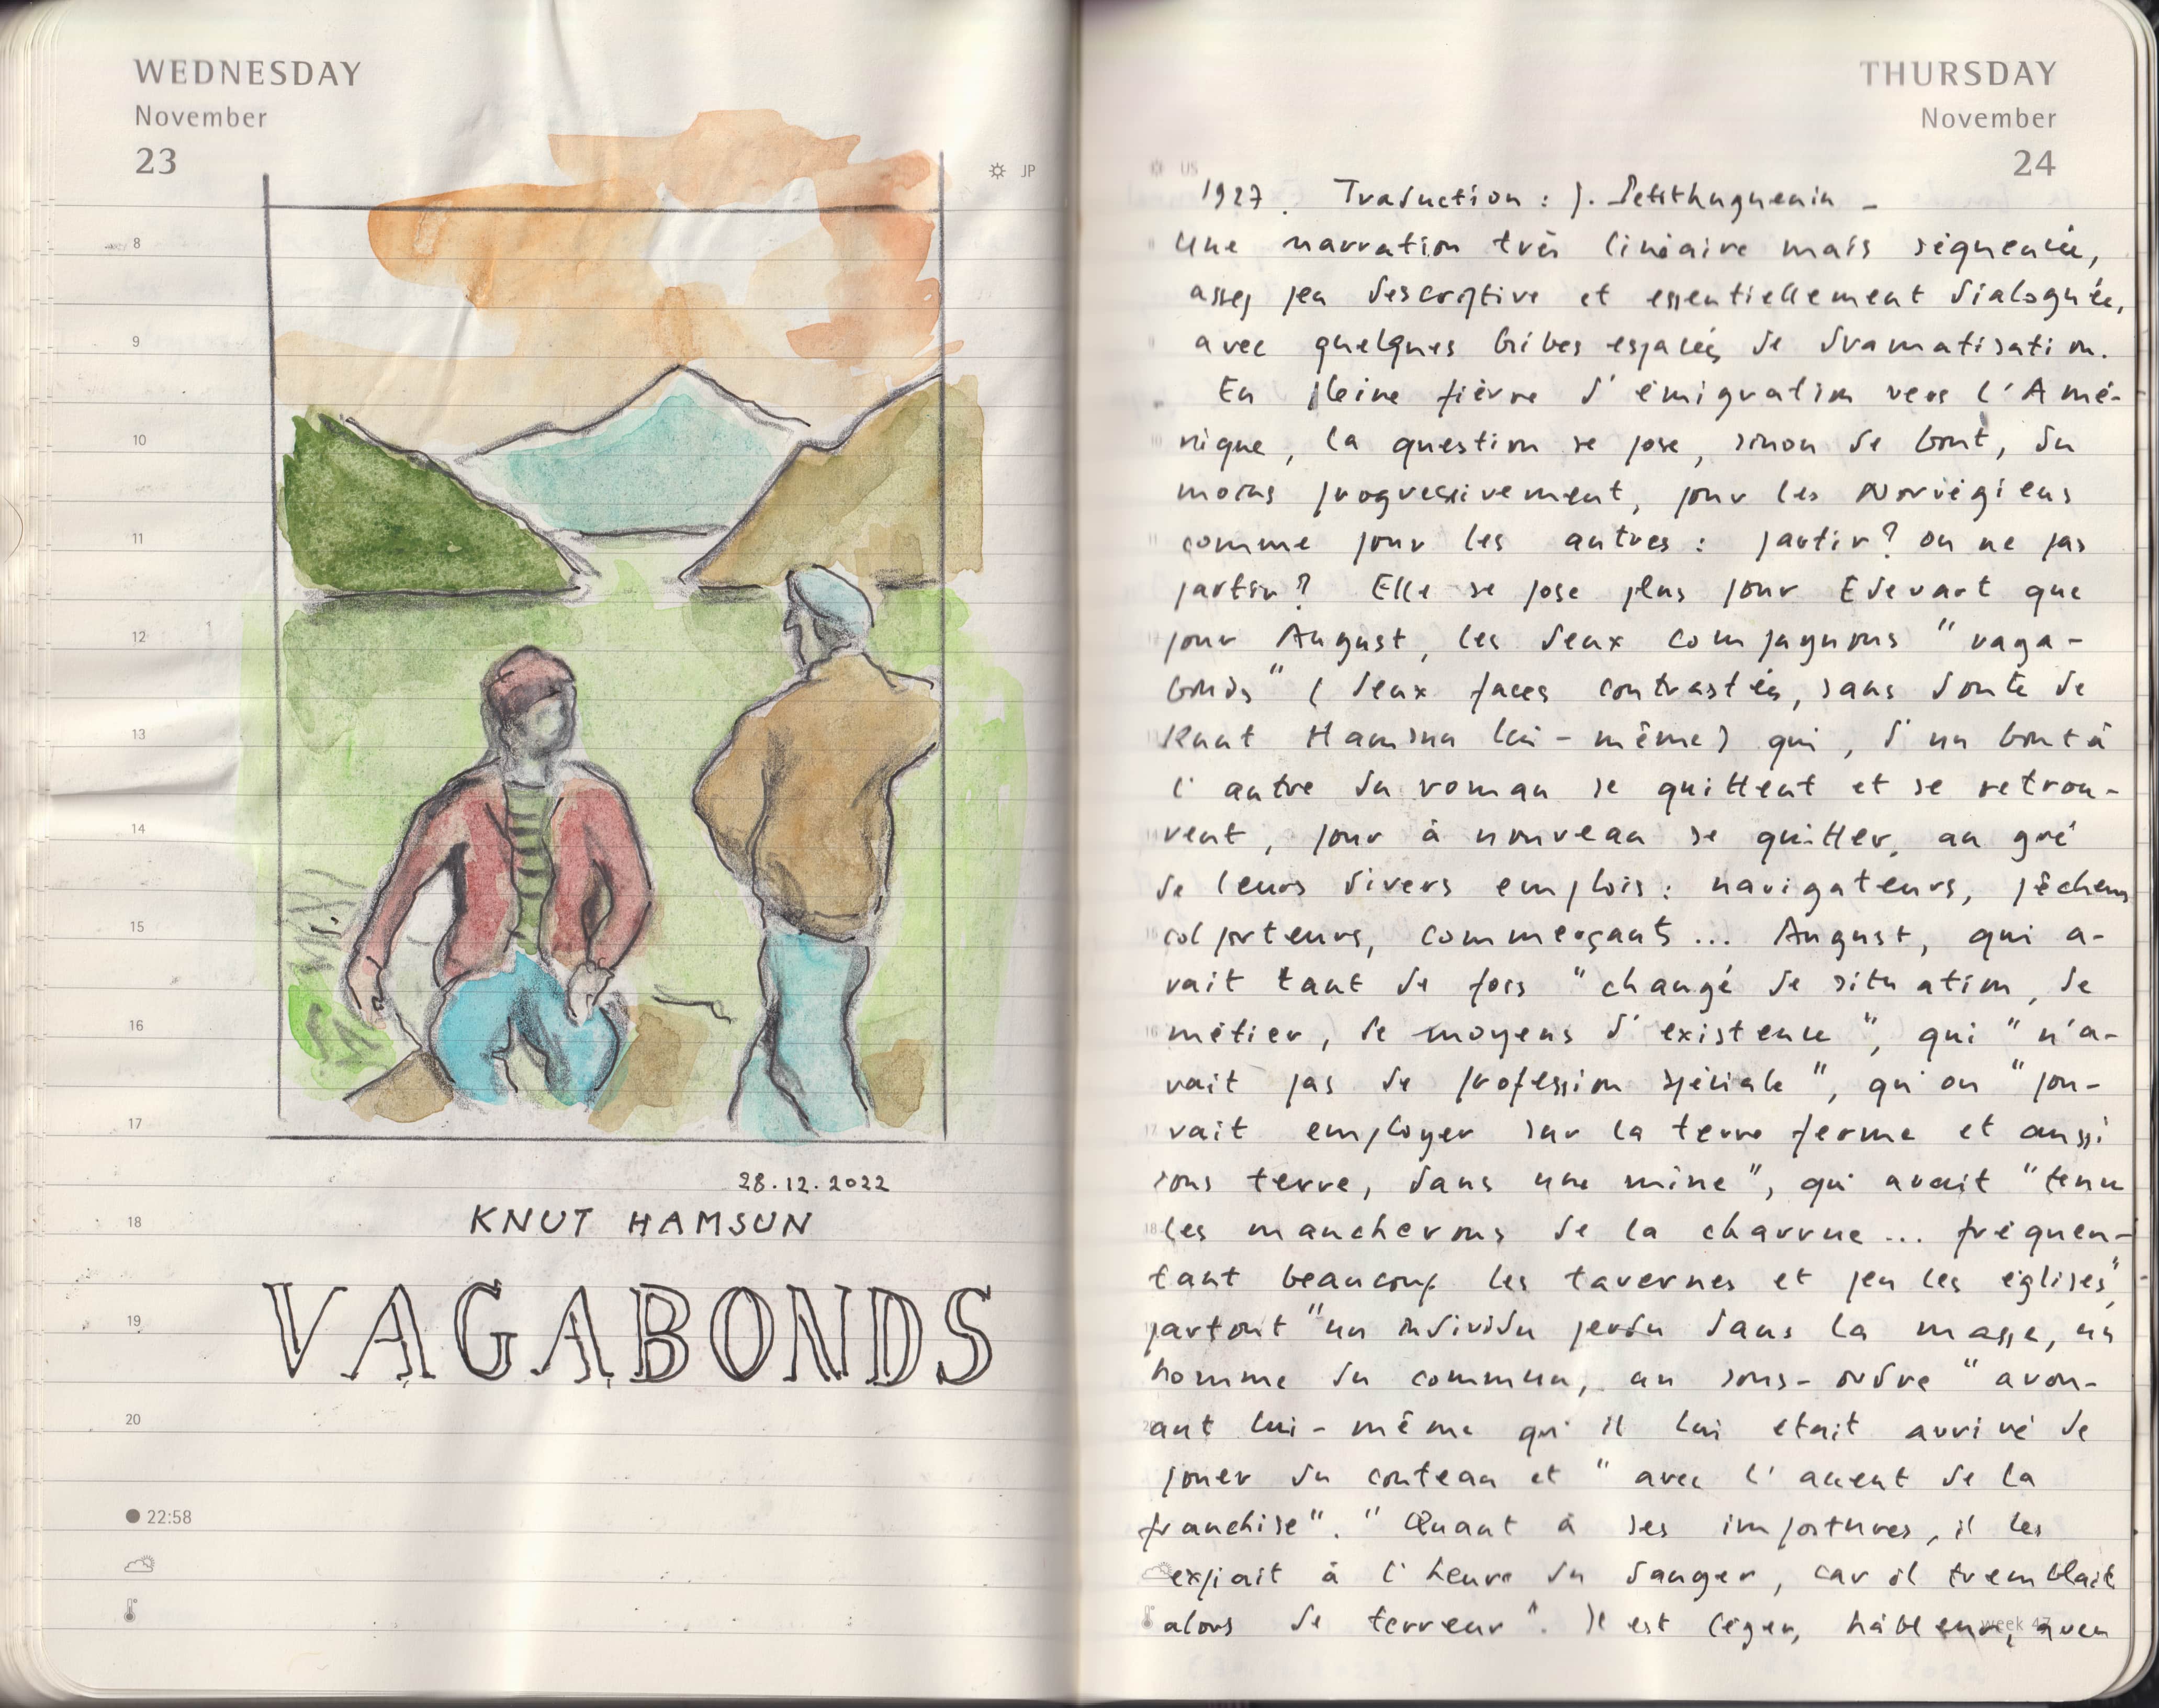 WEDNESDAY
November
23
JP
8
9
10
11
12
13
14
15
16
17
28.12.2022
18
KNUT HAMSUN
19
VAGABONDS
20
22:58
THURSDAY
November
24
US
1927. Traduction : J. Petithuguenin –
Une narration très linéaire mais séquencée,
assez peu descriptive et essentiellement dialoguée,
avec quelques bribes espacées de dramatisation.
En pleine fièvre d'émigration vers l'Amé-
rique, la question se pose, sinon de bout, du
moins progressivement, pour les Norvégiens
comme pour les autres : partir? ou ne pas
partir? Elle se pose plus pour Edevart que
pour August, les deux compagnons "vaga-
bonds" (deux faces contrastées, sans doute de
Knut Hamsun lui-même) qui, d'un bout à
l'autre du roman se quittent et se retrou-
vent, pour à nouveau se quitter, au gré
de leurs divers emplois : navigateurs, pêcheurs
colporteurs, commerçants... August, qui a-
vait tant de fois "changé de situation, de
métier, de moyens d'existence", qui "n'a-
vait pas de profession spéciale", qu'on "pou-
vait employer sur la terre ferme et aussi
sous terre, dans une mine", qui avait "tenu
les mancherons de la charrue... fréquen-
tant beaucoup les tavernes et peu les églises",
partout "un individu perdu dans la masse, un
homme du commun, un sous-ordre" avou-
ant lui-même qu'il lui était arrivé de
jouer du couteau et "avec l'accent de la
franchise". "Quant à ses impostures, il les
expiait à l'heure du danger, car il tremblait
alors de terreur". Il est léger, hâbleur, avec
week 47